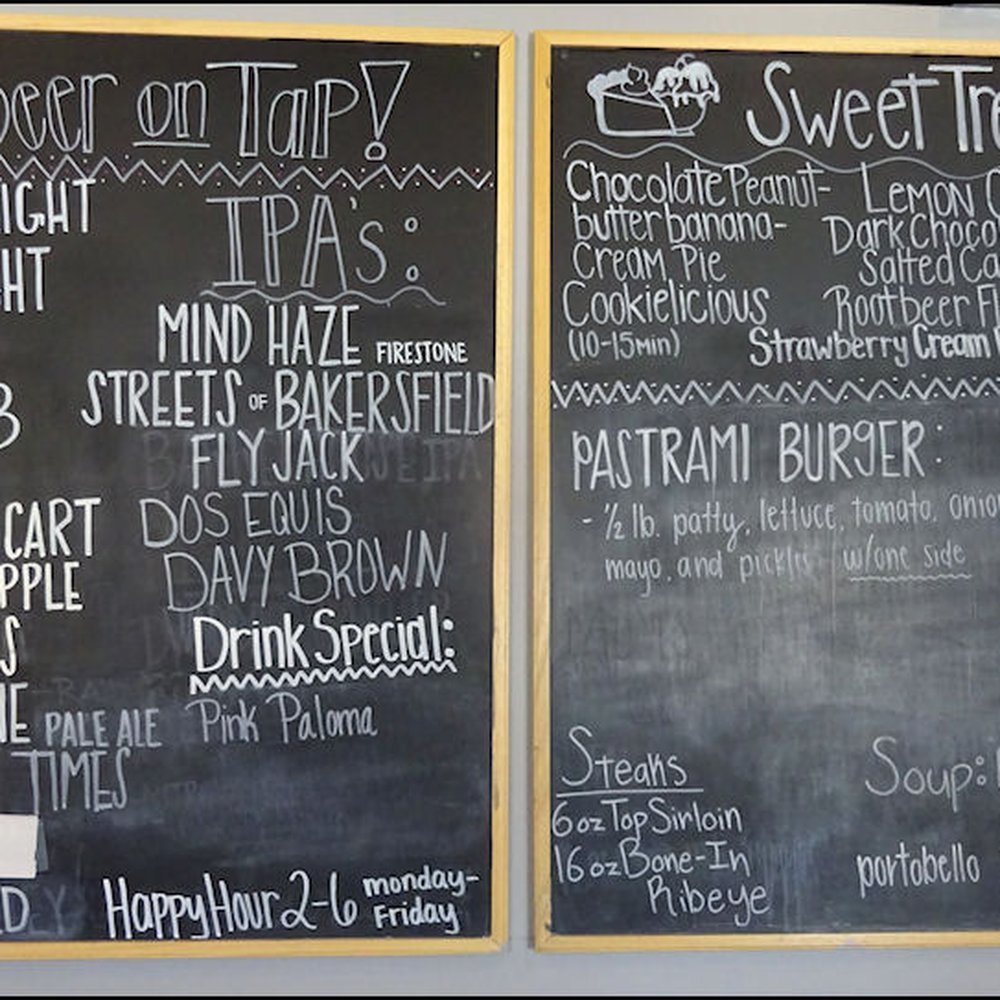 beer on Tap!
IGHT
HT
IPA's:
MIND HAZE FIRESTONE
STREETS OF BAKERSFIELD
FLY JACK
CART
DOS EQUIS
PPLE
DAVY BROWN
S
Drink Special:
NE PALE ALE
Pink Paloma
TIMES
Happy Hour 2-6 monday-
Friday
Sweet Tre
Chocolate Peanut-
butter banana-
Cream Pie
Cookielicious
(10-15min)
Lemon C
Dark Chocol
Salted Ca
Rootbeer Fl
Strawberry Cream
PASTRAMI BURGER:
- ½ lb. patty, lettuce, tomato, onio
mayo, and pickles w/one side
Steaks
6oz Top Sirloin
16oz Bone-In
Ribeye
Soup:
portobello